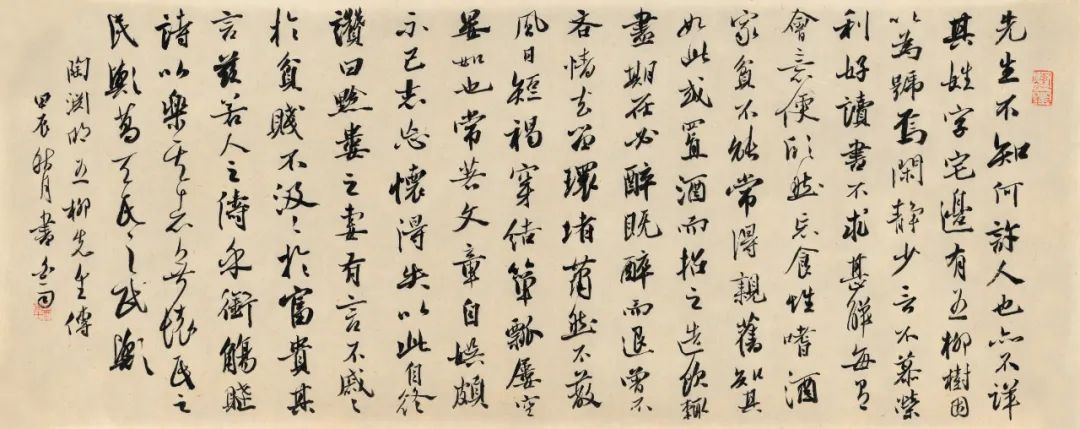 先生不知何許人也亦不詳
其姓字宅邊有五柳樹因
以為號焉閑靜少言不慕榮
利好讀書不求甚解每有
會意便欣然忘食性嗜酒
家貧不能常得親舊知其
如此或置酒而招之造飲輒
盡期在必醉既醉而退曾不
吝情去留環堵蕭然不蔽
風日短褐穿結簞瓢屢空
晏如也常著文章自娛頗
示己志忘懷得失以此自終
讚曰黔婁之妻有言不戚〻
於貧賤不汲〻於富貴其
言茲若人之儔乎銜觴賦
詩以樂其志無懷氏之
民歟葛天氏之民歟
陶淵明五柳先生傳
甲辰秋月書